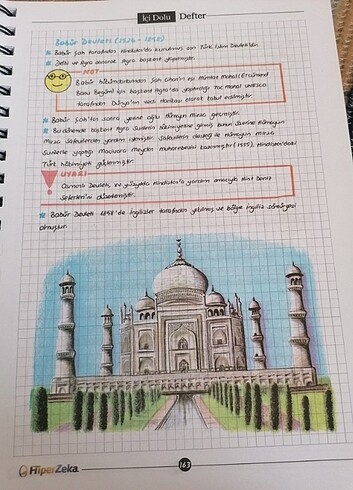 İçi Dolu Defter
Babür Devleti (1526 - 1858)
Babür Şah tarafından Hindistan'da kurulmuş son Türk İslam Devleti'dir.
Delhi ve Agra olarak Agra başkent yapılmıştır.
NOT
Babür hükümdarlarından Şah Cihan'ın eşi Mümtaz Mahal (Ercümend
Banu Begüm) için başkent Agra'da yaptırdığı Tac Mahal UNESCO
tarafından Dünya'nın yedi Harikası olarak kabul edilmiştir.
Babür Şah'tan sonra yerine oğlu Hümayun Mirza geçmiştir.
Bu dönemde başkent Agra Surilerin hakimiyetine girmiş bunun üzerine Hümayun
Mirza Safevilerden yardım istemiştir. Safevilerin desteği ile Hümayun Mirza
Surilerle yaptığı Maçivara Meydan muharebesini kazanmıştır (1555). Hindistan'daki
Türk hakimiyeti güçlenmiştir.
UYARI
Osmanlı Devleti, XVI. yüzyılda Hindistan'a yardım amacıyla Hint Deniz
Seferleri'ni düzenlemiştir.
Babür Devleti 1858'de İngilizler tarafından yıkılmış ve bölge İngiliz sömürgesi
olmuştur.
HiperZeka
163